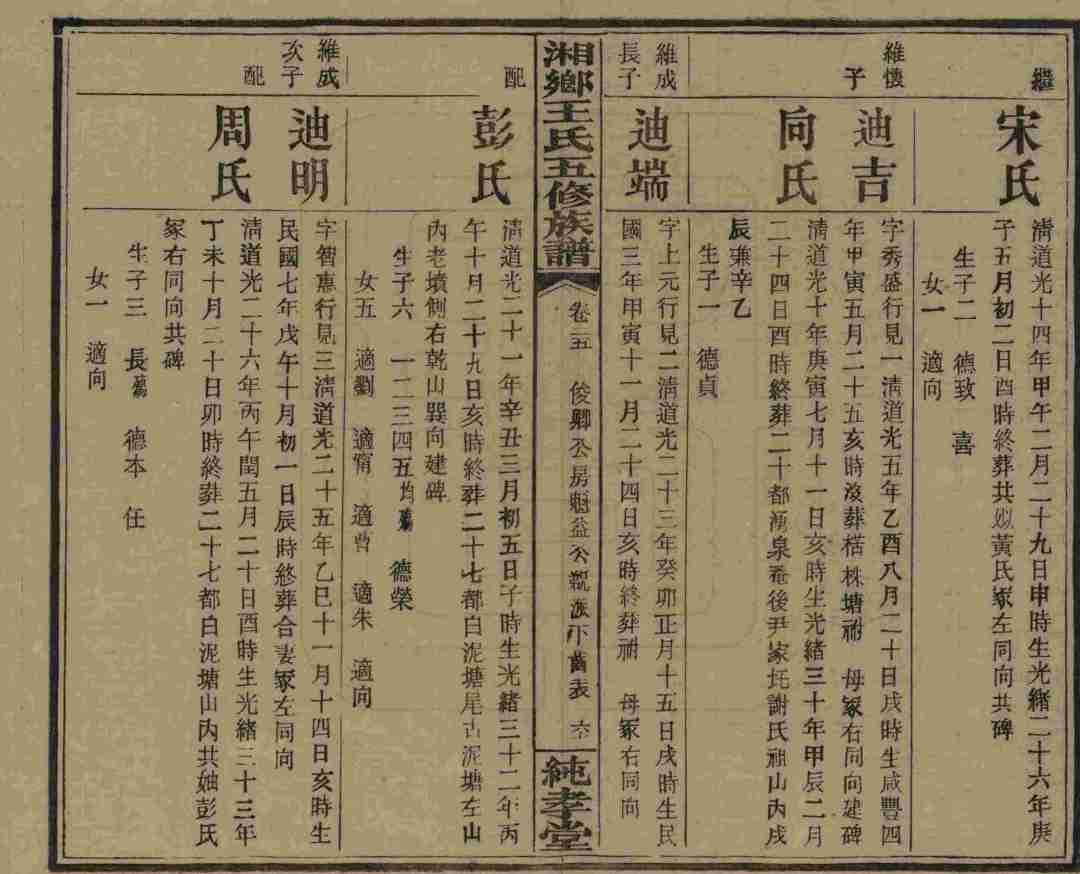 繼
宋氏
清道光十四年甲午二月二十九日申時生光緒二十六年庚
子五月初二日酉時終葬共姒黃氏冢左同向共碑
生子二 德致 喜
女一 適向
維懷
子
迪吉
字秀盛行見一清道光五年乙酉八月二十日戌時生咸豐四
年甲寅五月二十五亥時沒葬楛株塘祔 母冢右同向建碑
向氏
清道光十年庚寅七月十一日亥時生光緒三十年甲辰二月
二十四日酉時終葬二十都湧泉菴後尹家托謝氏祖山丙戌
辰兼辛乙
生子一 德貞
維成
長子
迪端
字上元行見二清道光二十三年癸卯正月十五日戌時生民
國三年甲寅十一月二十四日亥時終葬祔 母冢右同向
湘鄉王氏五修族譜
卷三五 俊卿公房魁益公親派下齒表 六
純孝堂
配
彭氏
清道光二十一年辛丑三月初五日子時生光緒三十二年丙
午十月二十九日亥時終葬二十七都白泥塘尾古泥塘左山
內老墳側右乾山巽向建碑
生子六 一二三四五均殤 德榮
女五 適劉 適甯 適曹 適朱 適向
維成
次子
迪明
字智惠行見三清道光二十五年乙巳十一月十四日亥時生
民國七年戊午十月初一日辰時終葬合妻冢左同向
配
周氏
清道光二十六年丙午閏五月二十日酉時生光緒三十三年
丁未十月二十日卯時終葬二十七都白泥塘山內共妯彭氏
冢右同向共碑
生子三 長殤 德本 任
女一 適向